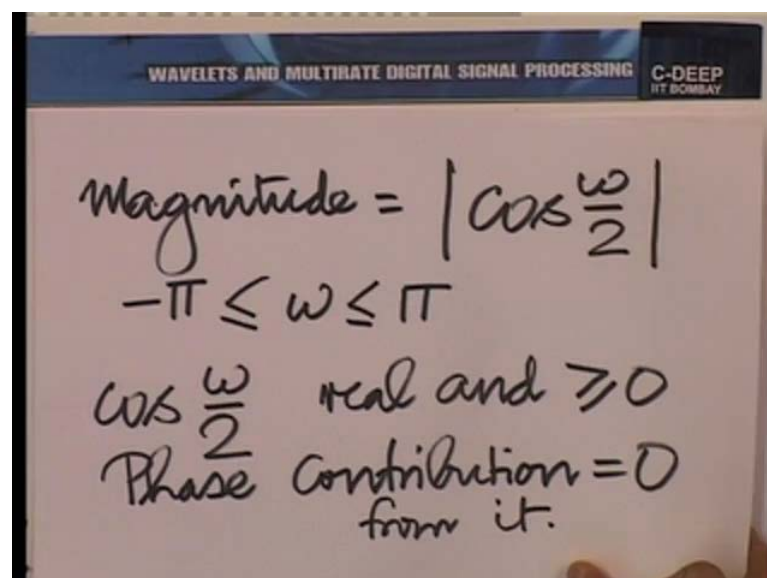 WAVELETS AND MULTIRATE DIGITAL SIGNAL PROCESSING
C-DEEP
IIT BOMBAY
Magnitude = |cos ω/2|
-π ≤ ω ≤ π
cos ω/2 real and ≥ 0
Phase contribution = 0
from it.